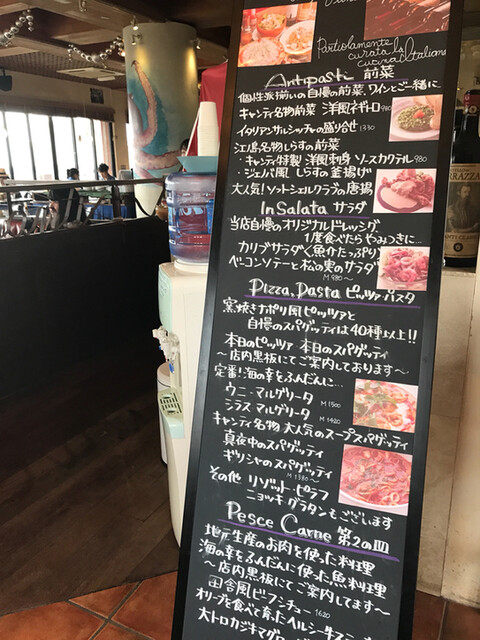 Particolamente
curata la
cucina Italiana
Antipasti 前菜
個性派揃いの自慢の前菜、ワインとご一緒に
キャンティ名物前菜 洋風ネギトロ 980
イタリアンサルシッチャの盛り合せ 1330
江ノ島名物しらすの前菜
・キャンティ特製 洋風刺身 ソースカクテル 980
・ジェノバ風 しらすの釜揚げ
大人気!ソフトシェルクラブの唐揚
InSalata サラダ
当店自慢のオリジナルドレッシング
1度食べたらやみつきに…
カリブサラダ〈魚介たっぷり〉
ベーコンソテーと松の実のサラダ
M 980〜
Pizza, Pasta ピッツァ パスタ
窯焼きナポリ風ピッツァと
自慢のスパゲッティは40種以上!!
本日のピッツァ 本日のスパゲッティ
〜店内黒板にてご案内しております〜
定番!海の幸をふんだんに…
ウニ・マルゲリータ M 1500
シラス・マルゲリータ M 1420
キャンティ名物 大人気のスープスパゲッティ
真夜中のスパゲッティ
ギリシャのスパゲッティ
M 1380〜
その他 リゾット・ピラフ
ニョッキ グラタンもございます
Pesce Carne 第2の皿
地元生産のお肉を使った料理
海の幸をふんだんに使った魚料理
〜店内黒板にてご案内してます〜
田舎風ビーフシチュー 1620
オリーブを食べて育ったヘルシー牛
大トロカジキマグロ